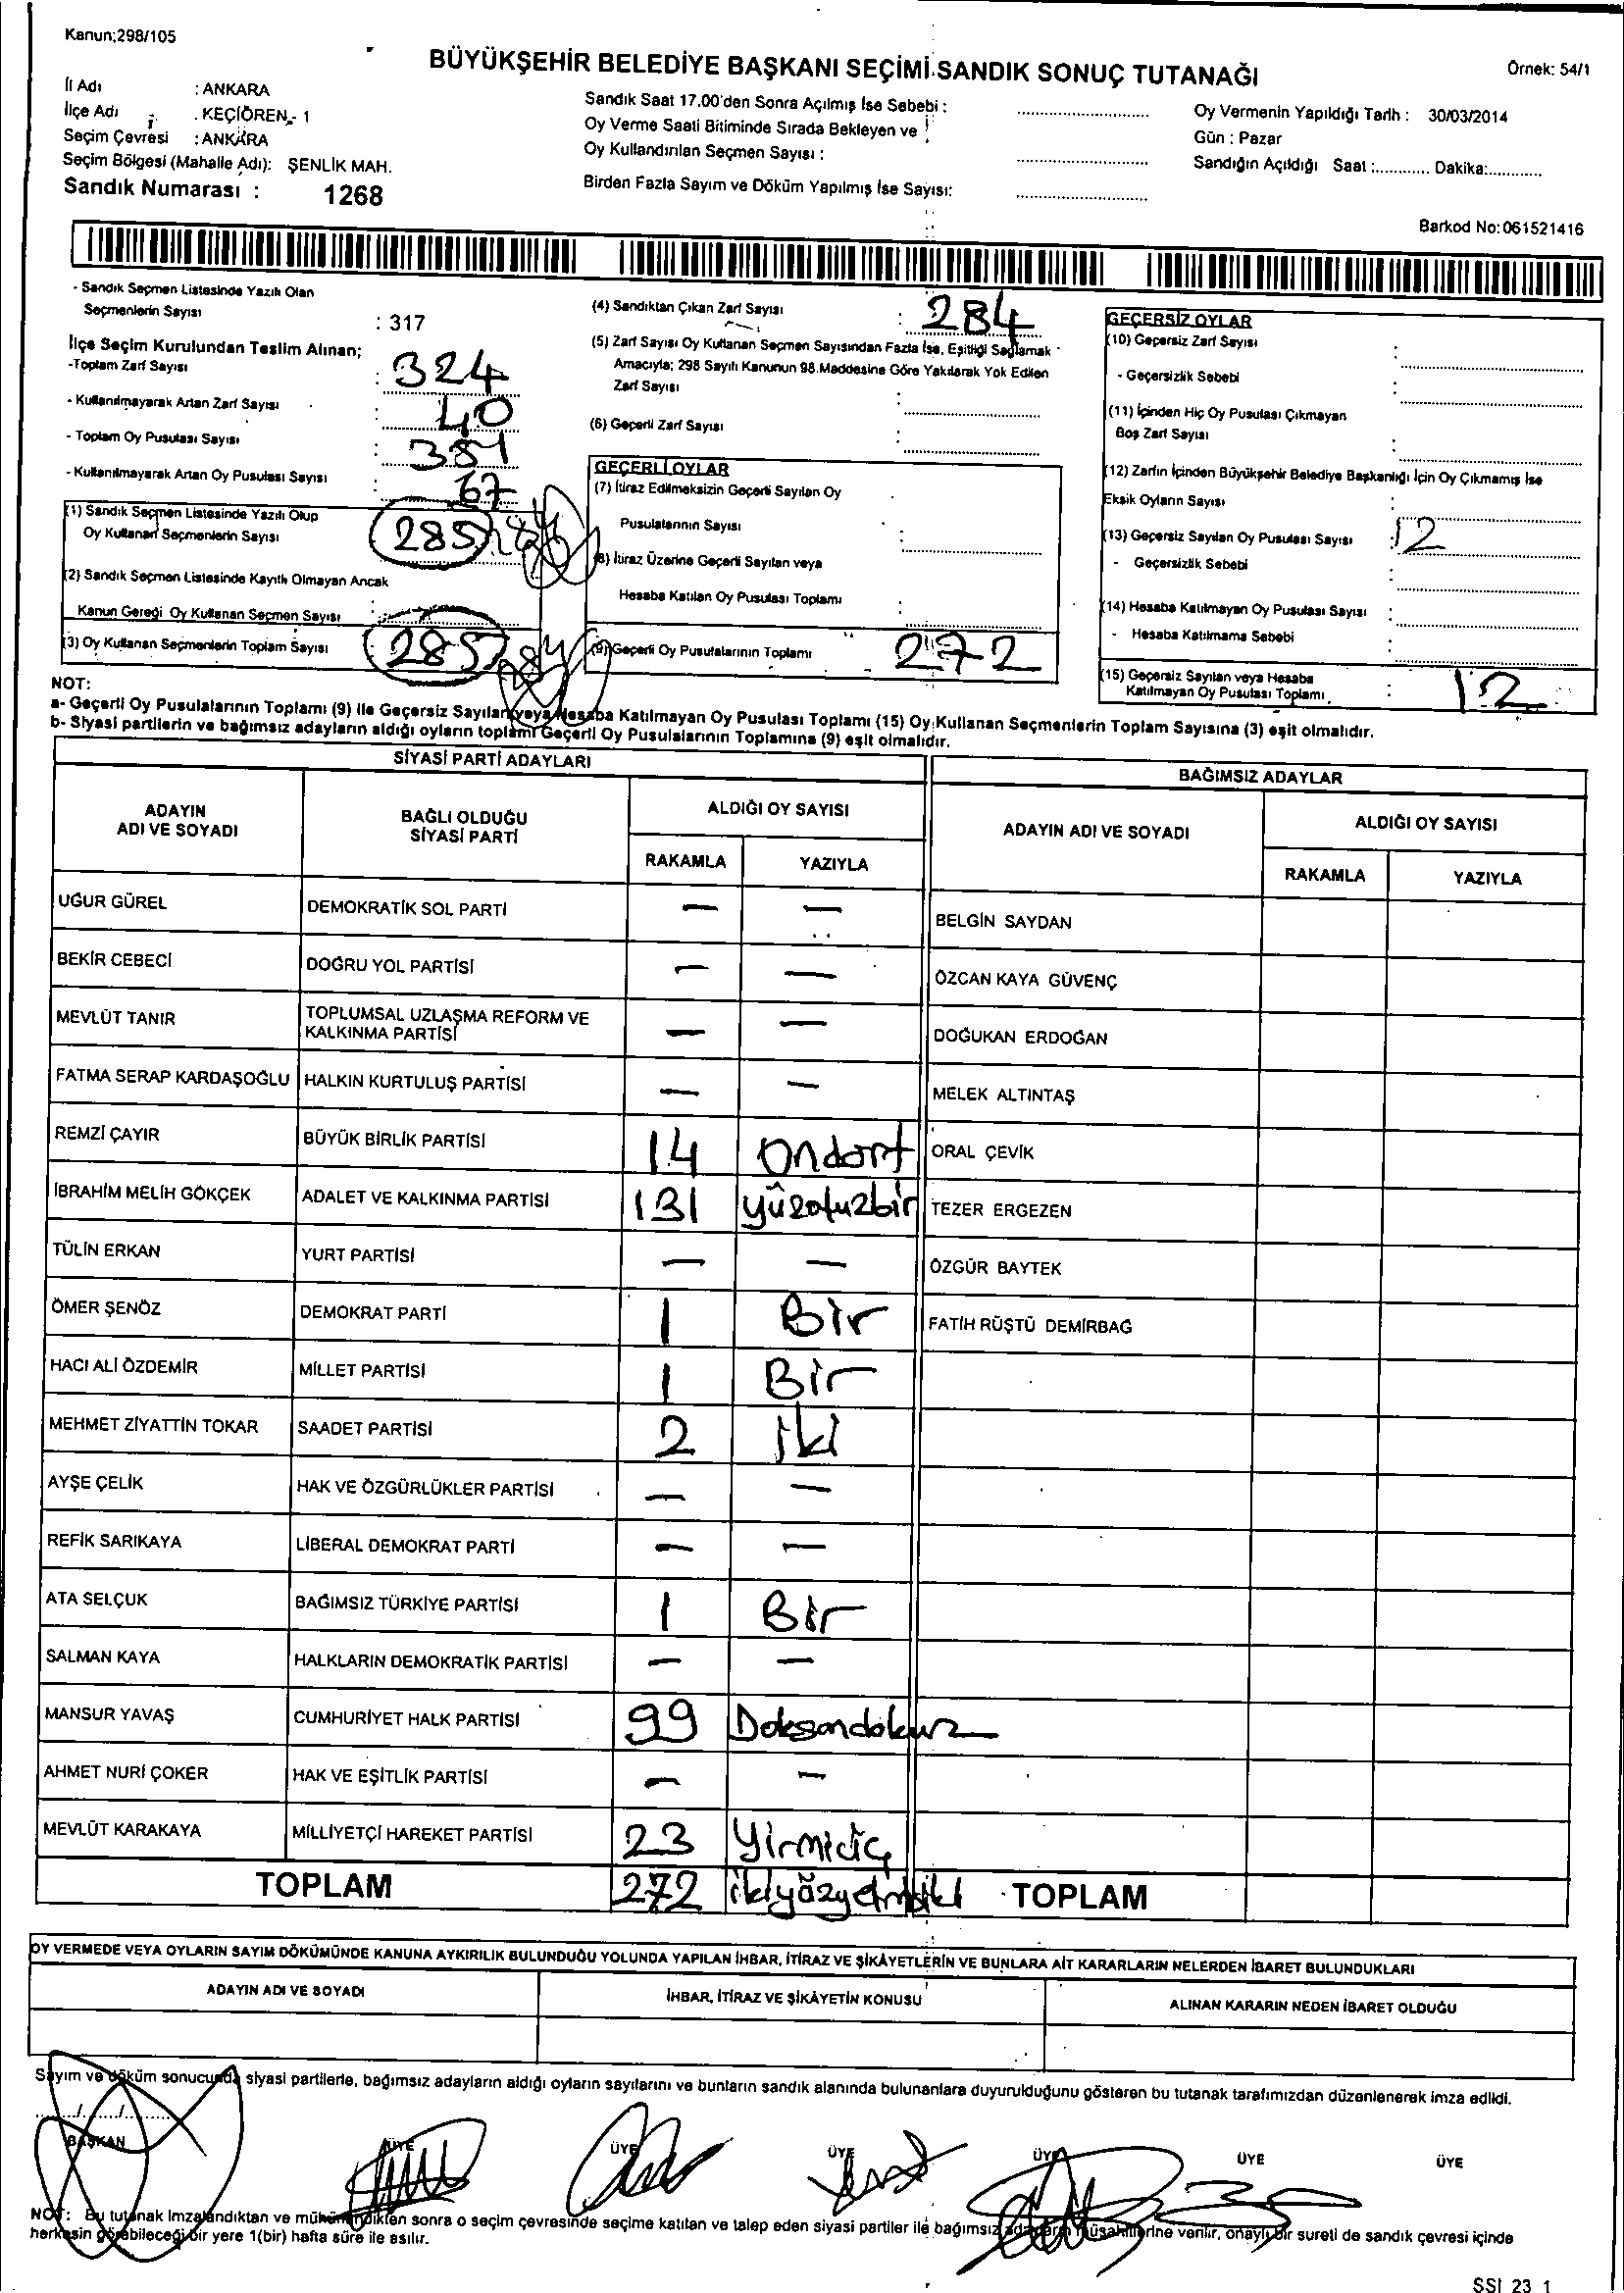 Kanun;298/105
BÜYÜKŞEHİR BELEDİYE BAŞKANI SEÇİMİ SANDIK SONUÇ TUTANAĞI
Örnek: 54/1
İl Adı : ANKARA
İlçe Adı : KEÇİÖREN - 1
Seçim Çevresi : ANKARA
Seçim Bölgesi (Mahalle Adı): ŞENLİK MAH.
Sandık Numarası : 1268
Sandık Saat 17.00'den Sonra Açılmış İse Sebebi :
Oy Verme Saati Bitiminde Sırada Bekleyen ve
Oy Kullandırılan Seçmen Sayısı :
Birden Fazla Sayım ve Döküm Yapılmış İse Sayısı:
Oy Vermenin Yapıldığı Tarih : 30/03/2014
Gün : Pazar
Sandığın Açıldığı Saat :............ Dakika:............
Barkod No:061521416
- Sandık Seçmen Listesinde Yazılı Olan
Seçmenlerin Sayısı : 317
İlçe Seçim Kurulundan Teslim Alınan;
-Toplam Zarf Sayısı : 324
- Kullanılmayarak Artan Zarf Sayısı : 40
- Toplam Oy Pusulası Sayısı : 351
- Kullanılmayarak Artan Oy Pusulası Sayısı : 67
(1) Sandık Seçmen Listesinde Yazılı Olup
Oy Kullanan Seçmenlerin Sayısı 285 284
(2) Sandık Seçmen Listesinde Kayıtlı Olmayan Ancak
Kanun Gereği Oy Kullanan Seçmen Sayısı :
(3) Oy Kullanan Seçmenlerin Toplam Sayısı 285 284
(4) Sandıktan Çıkan Zarf Sayısı : 284
(5) Zarf Sayısı Oy Kullanan Seçmen Sayısından Fazla İse, Eşitliği Sağlamak
Amacıyla; 298 Sayılı Kanunun 98.Maddesine Göre Yakılarak Yok Edilen
Zarf Sayısı :
(6) Geçerli Zarf Sayısı :
GEÇERLİ OYLAR
(7) İtiraz Edilmeksizin Geçerli Sayılan Oy
Pusulalarının Sayısı :
(8) İtiraz Üzerine Geçerli Sayılan veya
Hesaba Katılan Oy Pusulası Toplamı :
(9) Geçerli Oy Pusulalarının Toplamı 272
GEÇERSİZ OYLAR
(10) Geçersiz Zarf Sayısı :
- Geçersizlik Sebebi :
(11) İçinden Hiç Oy Pusulası Çıkmayan
Boş Zarf Sayısı :
(12) Zarfın İçinden Büyükşehir Belediye Başkanlığı İçin Oy Çıkmamış İse
Eksik Oyların Sayısı :
(13) Geçersiz Sayılan Oy Pusulası Sayısı : 12
- Geçersizlik Sebebi :
(14) Hesaba Katılmayan Oy Pusulası Sayısı :
- Hesaba Katılmama Sebebi :
(15) Geçersiz Sayılan veya Hesaba
Katılmayan Oy Pusulası Toplamı : 12
NOT:
a- Geçerli Oy Pusulalarının Toplamı (9) ile Geçersiz Sayılan veya Hesaba Katılmayan Oy Pusulası Toplamı (15) Oy Kullanan Seçmenlerin Toplam Sayısına (3) eşit olmalıdır.
b- Siyasi partilerin ve bağımsız adayların aldığı oyların toplamı Geçerli Oy Pusulalarının Toplamına (9) eşit olmalıdır.
SİYASİ PARTİ ADAYLARI
BAĞIMSIZ ADAYLAR
ADAYIN ADI VE SOYADI
BAĞLI OLDUĞU SİYASİ PARTİ
ALDIĞI OY SAYISI
RAKAMLA YAZIYLA
ADAYIN ADI VE SOYADI
ALDIĞI OY SAYISI
RAKAMLA YAZIYLA
UĞUR GÜREL DEMOKRATİK SOL PARTİ — — BELGİN SAYDAN
BEKİR CEBECİ DOĞRU YOL PARTİSİ — — ÖZCAN KAYA GÜVENÇ
MEVLÜT TANIR TOPLUMSAL UZLAŞMA REFORM VE KALKINMA PARTİSİ — — DOĞUKAN ERDOĞAN
FATMA SERAP KARDAŞOĞLU HALKIN KURTULUŞ PARTİSİ — — MELEK ALTINTAŞ
REMZİ ÇAYIR BÜYÜK BİRLİK PARTİSİ 14 Ondört ORAL ÇEVİK
İBRAHİM MELİH GÖKÇEK ADALET VE KALKINMA PARTİSİ 131 yüzotuzbir TEZER ERGEZEN
TÜLİN ERKAN YURT PARTİSİ — — ÖZGÜR BAYTEK
ÖMER ŞENÖZ DEMOKRAT PARTİ 1 Bir FATİH RÜŞTÜ DEMİRBAĞ
HACI ALİ ÖZDEMİR MİLLET PARTİSİ 1 Bir
MEHMET ZİYATTİN TOKAR SAADET PARTİSİ 2 iki
AYŞE ÇELİK HAK VE ÖZGÜRLÜKLER PARTİSİ — —
REFİK SARIKAYA LİBERAL DEMOKRAT PARTİ — —
ATA SELÇUK BAĞIMSIZ TÜRKİYE PARTİSİ 1 Bir
SALMAN KAYA HALKLARIN DEMOKRATİK PARTİSİ — —
MANSUR YAVAŞ CUMHURİYET HALK PARTİSİ 99 Doksandokuz
AHMET NURİ ÇOKER HAK VE EŞİTLİK PARTİSİ — —
MEVLÜT KARAKAYA MİLLİYETÇİ HAREKET PARTİSİ 23 Yirmiüç
TOPLAM 272 ikiyüzyetmişiki TOPLAM
OY VERMEDE VEYA OYLARIN SAYIM DÖKÜMÜNDE KANUNA AYKIRILIK BULUNDUĞU YOLUNDA YAPILAN İHBAR, İTİRAZ VE ŞİKÂYETLERİN VE BUNLARA AİT KARARLARIN NELERDEN İBARET BULUNDUKLARI
ADAYIN ADI VE SOYADI İHBAR, İTİRAZ VE ŞİKÂYETİN KONUSU ALINAN KARARIN NEDEN İBARET OLDUĞU
Sayım ve döküm sonucunda siyasi partilerle, bağımsız adayların aldığı oyların sayılarını ve bunların sandık alanında bulunanlara duyurulduğunu gösteren bu tutanak tarafımızdan düzenlenerek imza edildi.
....../....../......
BAŞKAN ÜYE ÜYE ÜYE ÜYE ÜYE ÜYE
NOT: Bu tutanak imzalandıktan ve mühürlendikten sonra o seçim çevresinde seçime katılan ve talep eden siyasi partiler ile bağımsız adayların müşahitlerine verilir, onaylı bir sureti de sandık çevresi içinde
herkesin görebileceği bir yere 1(bir) hafta süre ile asılır.
SSI 23 1